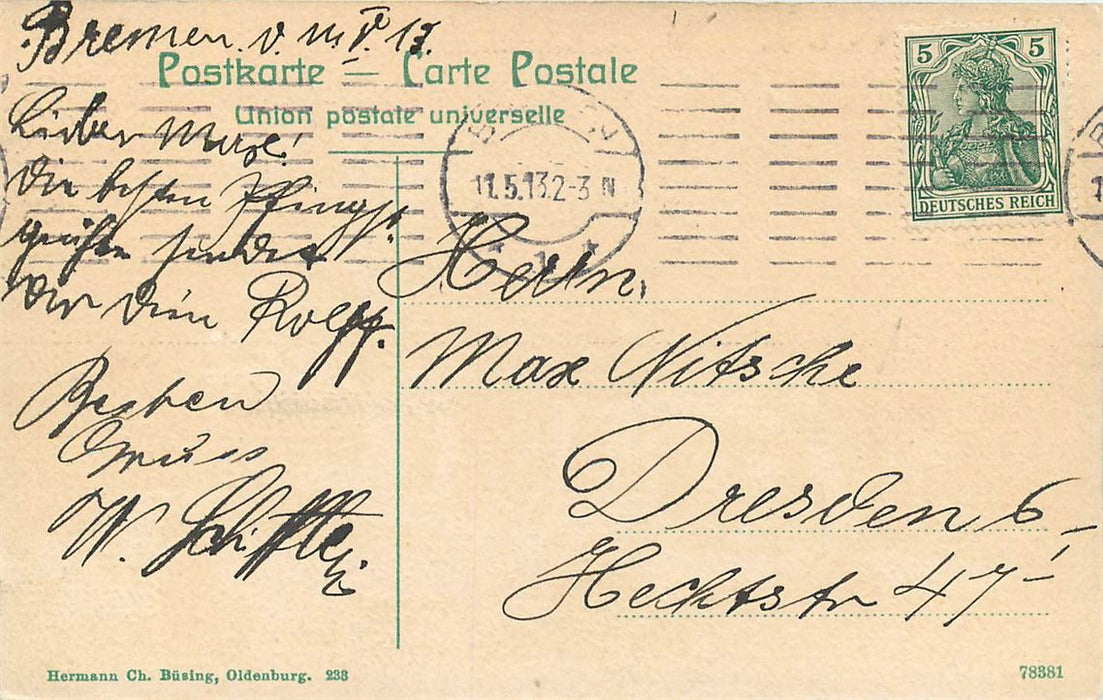 Bremen. d. 11. V. 13.
Postkarte — Carte Postale
Union postale universelle
Lieber Max!
Die besten Pfingst-
grüße sendet
Dir Dein Rolf.
Besten
Gruss
W.
11.5.13.2-3 N
1
5 5
DEUTSCHES REICH
Herrn,
Max Nitsche
Dresden 6
Hechtstr 47
Hermann Ch. Büsing, Oldenburg. 233
78381